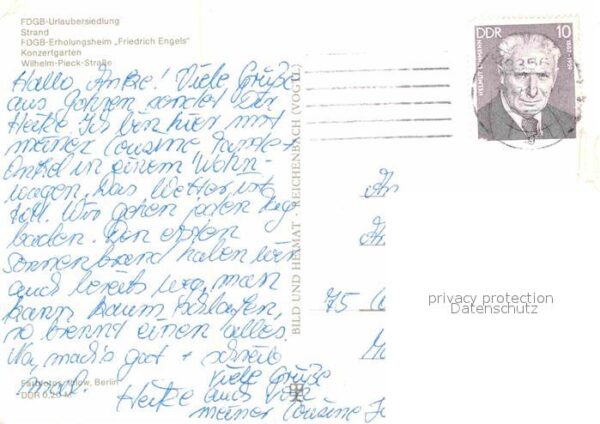 FDGB-Urlaubersiedlung
Strand
FDGB-Erholungsheim „Friedrich Engels"
Konzertgarten
Wilhelm-Pieck-Straße
Hallo Antke! Viele Grüße
aus sendet Dir
Heike. Ich bin hier mit
meiner Cousine Tante +
Onkel in einem Wohn-
wagen. Das Wetter ist
toll. Wir gehen jeden Tag
baden. Den ersten
Sonnenbrand haben wir
auch bereits weg, man
kann kaum schlafen,
so brennt einen alles.
Na, mach's gut + schreib
mal. Viele Grüße
Heike auch von
meiner Cousine
Berlin
DDR 0,20 M
BILD UND HEIMAT · REICHENBACH (VOGTL)
DDR
10
75
privacy protection
Datenschutz